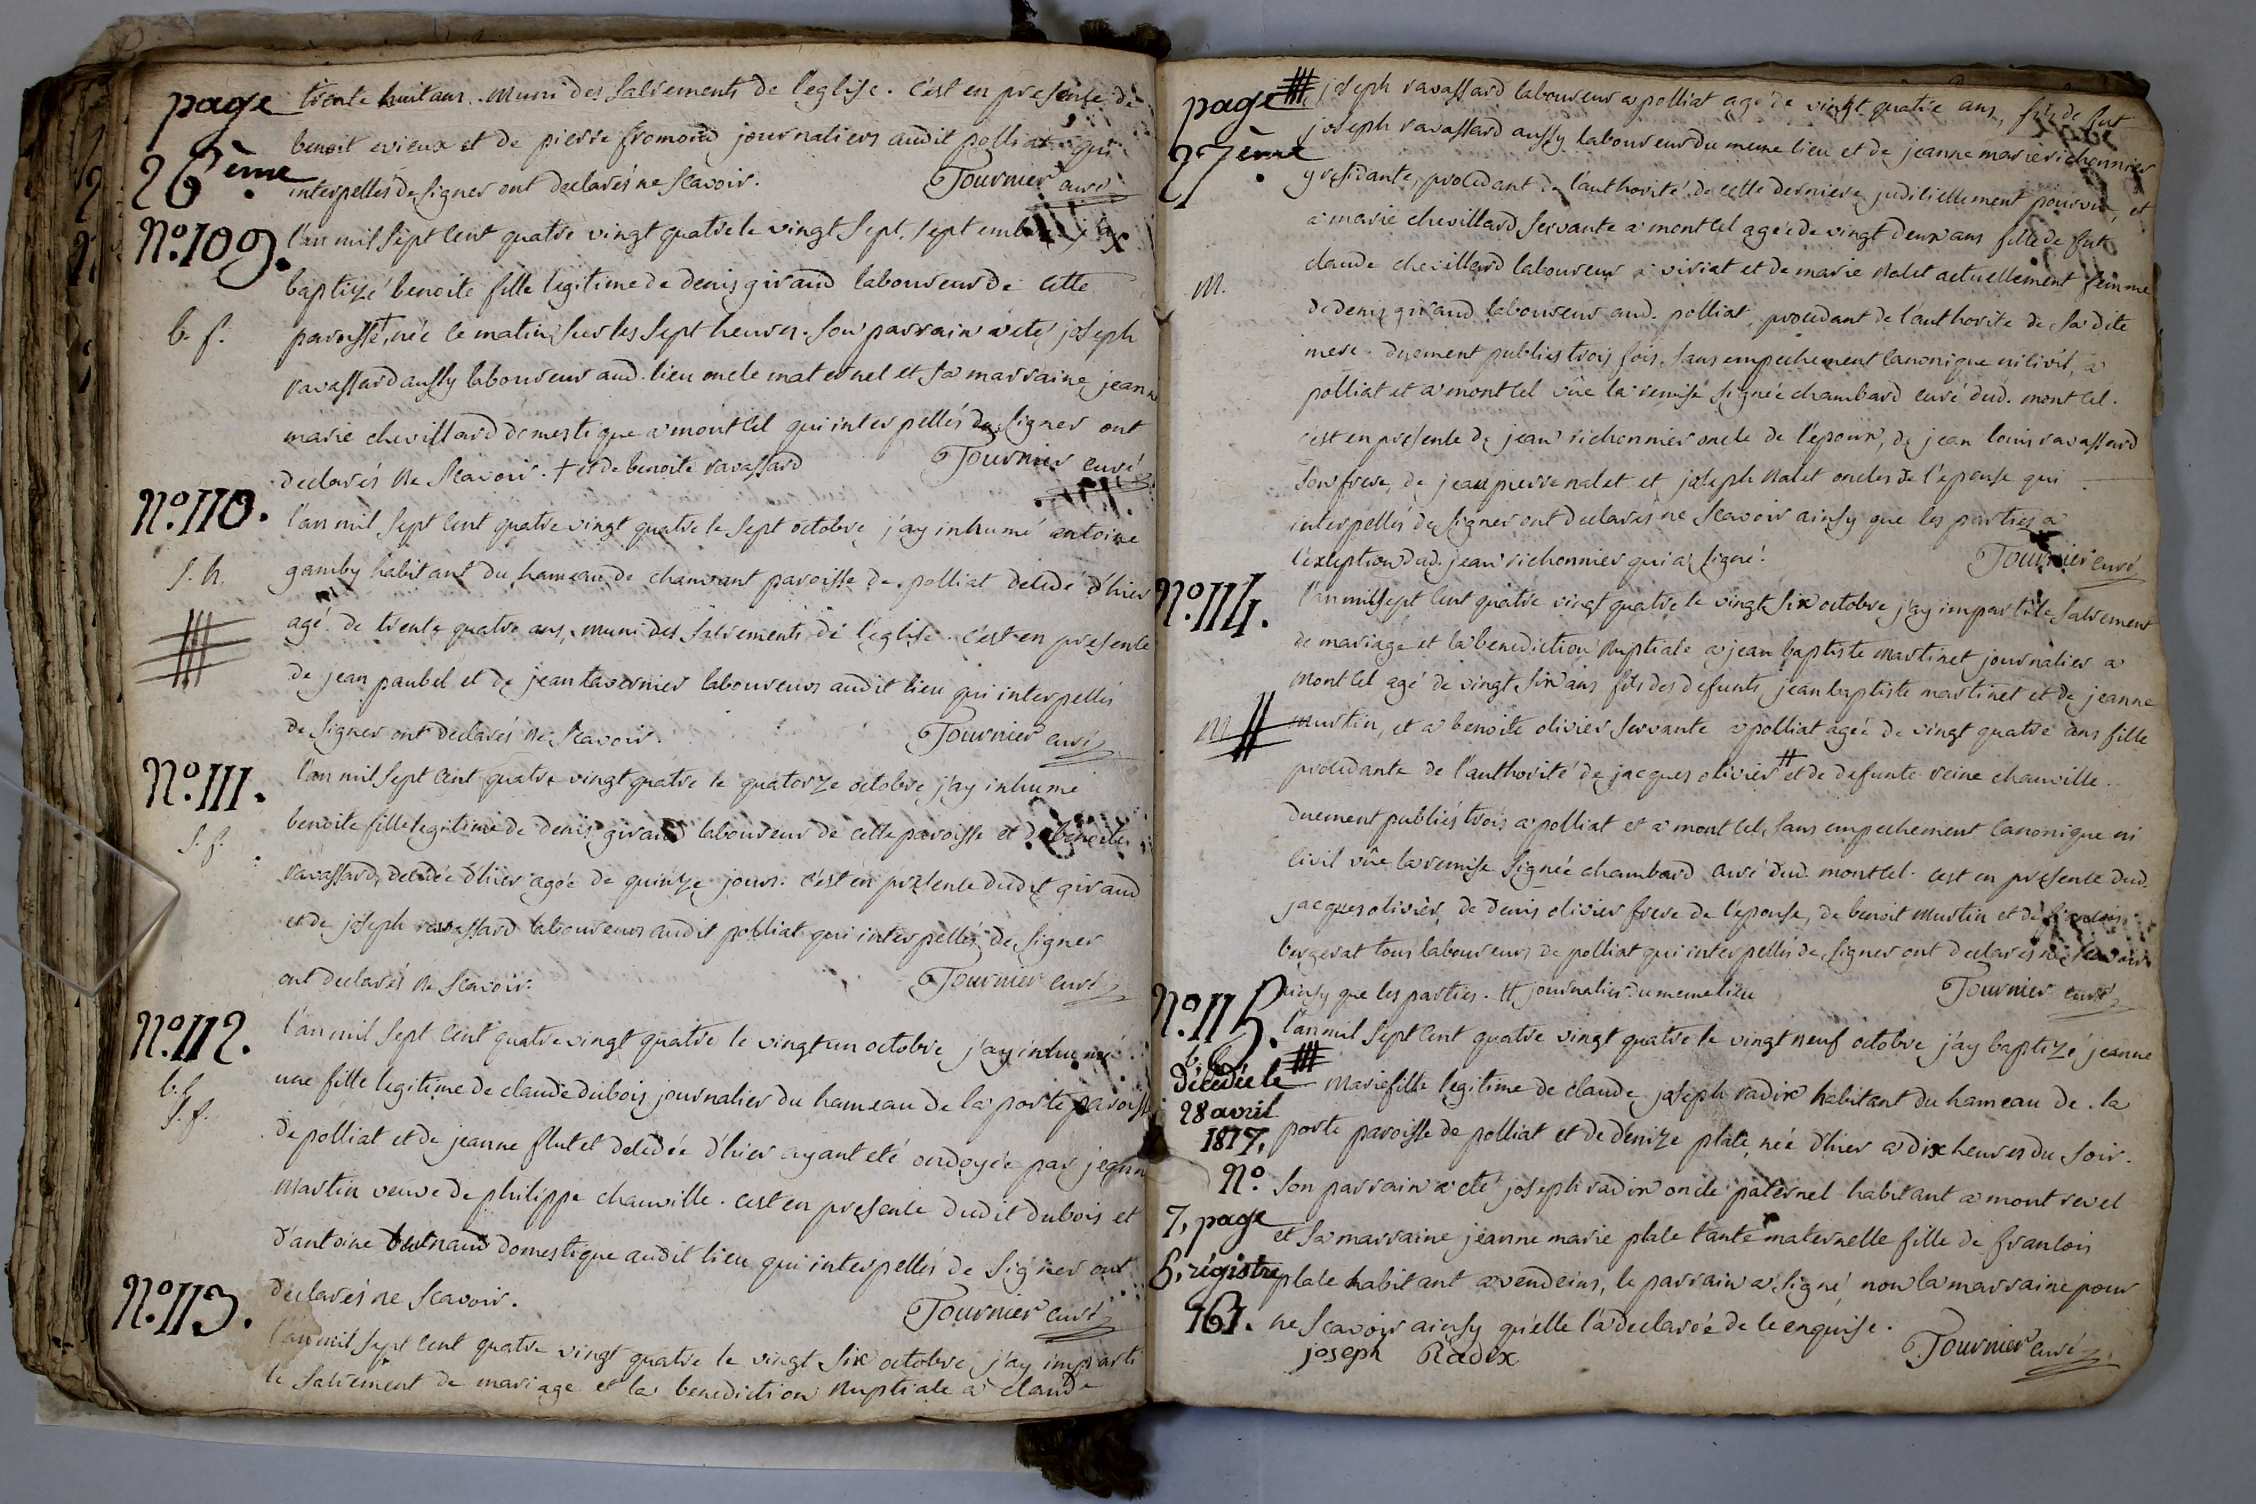 page
26ème
trente huit ans. muni des sacrements de l'eglise. c'est en presence de
benoit evieux et de pierre fromond journaliers audit polliat qui
interpellés de signer ont declarés ne scavoir. Tournier curé
N.o 109.
l'an mil sept cent quatre vingt quatre le vingt sept septembre j'ay
baptizé benoite fille legitime de denis giraud laboureur de cette
b. f.
paroisse + née ce matin sur les sept heures. son parrain a eté joseph
ravassard aussy laboureur aud. lieu oncle maternel et sa marraine jeanne
marie chevillard domestique a montcel qui interpellés de signer ont
declarés ne scavoir. + et de benoite ravassard Tournier curé
N.o 110.
l'an mil sept cent quatre vingt quatre le sept octobre j'ay inhumé antoine
s. h.
gamby habitant du hameau de chanvant paroisse de polliat decedé d'hier
agé de trente quatre ans, muni des sacrements de l'eglise. c'est en presence
de jean paubel et de jean tavernier laboureurs audit lieu qui interpellés
de signer ont declarés ne scavoir. Tournier curé
N.o 111.
l'an mil sept cent quatre vingt quatre le quatorze octobre j'ay inhumé
s. f.
benoite fille legitime de denis giraud laboureur de cette paroisse et de benoite
ravassard, decedée d'hier agée de quinze jours. c'est en presence dudit giraud
et de joseph ravassard laboureurs audit polliat qui interpellés de signer
ont declarés ne scavoir. Tournier curé
N.o 112.
l'an mil sept cent quatre vingt quatre le vingt un octobre j'ay inhumé
b. f.
s. f.
une fille legitime de claude dubois journalier du hameau de la porte paroisse
de polliat et de jeanne flutet decedée d'hier ayant eté ondoyée par jeanne
martin veuve de philippe chanville. c'est en presence dudit dubois et
d'antoine domestique audit lieu qui interpellés de signer ont
declarés ne scavoir. Tournier curé
N.o 113.
l'an mil sept cent quatre vingt quatre le vingt six octobre j'ay imparti
le sacrement de mariage et la benediction nuptiale a claude
page
27ème
joseph ravassard laboureur a polliat agé de vingt quatre ans, fils de fut
joseph ravassard aussy laboureur du meme lieu et de jeanne marie richonnier
y residante, procedant de l'authorité de cette derniere judiciellement pourvu, et
a marie chevillard servante a montcel agée de vingt deux ans fille de fut
m.
claude chevillard laboureur a viriat et de marie nalet actuellement femme
de denis giraud laboureur aud. polliat, procedant de l'authorité de sa dite
mere. duement publies trois fois, sans empechement canonique ni civil, a
polliat et a montcel vûe la remise signée chambard curé dud. montcel.
c'est en presence de jean richonnier oncle de l'epoux, de jean louis ravassard
son frere, de jean pierre nalet et joseph nalet oncles de l'epouse qui
interpellés de signer ont declarés ne scavoir ainsy que les parties a
l'exception dud. jean richonnier qui a signé. Tournier curé
N.o 114.
l'an mil sept cent quatre vingt quatre le vingt six octobre j'ay imparti le sacrement
de mariage et la benediction nuptiale a jean baptiste martinet journalier a
montcel agé de vingt six ans fils des defunts jean baptiste martinet et de jeanne
m
murtin, et a benoite olivier servante a polliat agée de vingt quatre ans fille
procedante de l'authorité de jacques olivier # et de defunte reine chanville.
duement publiés trois a polliat et a montcel, sans empechement canonique ni
civil vûe la remise signée chambard curé dud. montcel. c'est en presence dud.
jacques olivier, de denis olivier frere de l'epouse, de benoit murtin et de francois
bergerat tous laboureurs de polliat qui interpellés de signer ont declarés ne scavoir
ainsy que les parties. # journalier du meme lieu Tournier curé
N.o 115.
l'an mil sept cent quatre vingt quatre le vingt neuf octobre j'ay baptizé jeanne
b. f.
marie fille legitime de claude joseph radix habitant du hameau de la
porte paroisse de polliat et de denize plate, née d'hier a dix heures du soir.
son parrain a eté joseph radix oncle paternel habitant a montrevel
et sa marraine jeanne marie plate tante maternelle fille de francois
plate habitant a vendeins, le parrain a signé non la marraine pour
ne scavoir ainsy qu'elle l'a declarée de ce enquise.
joseph Radix Tournier curé
décédée le
28 avril
1817,
N.o
7, page
6, régistre
161.